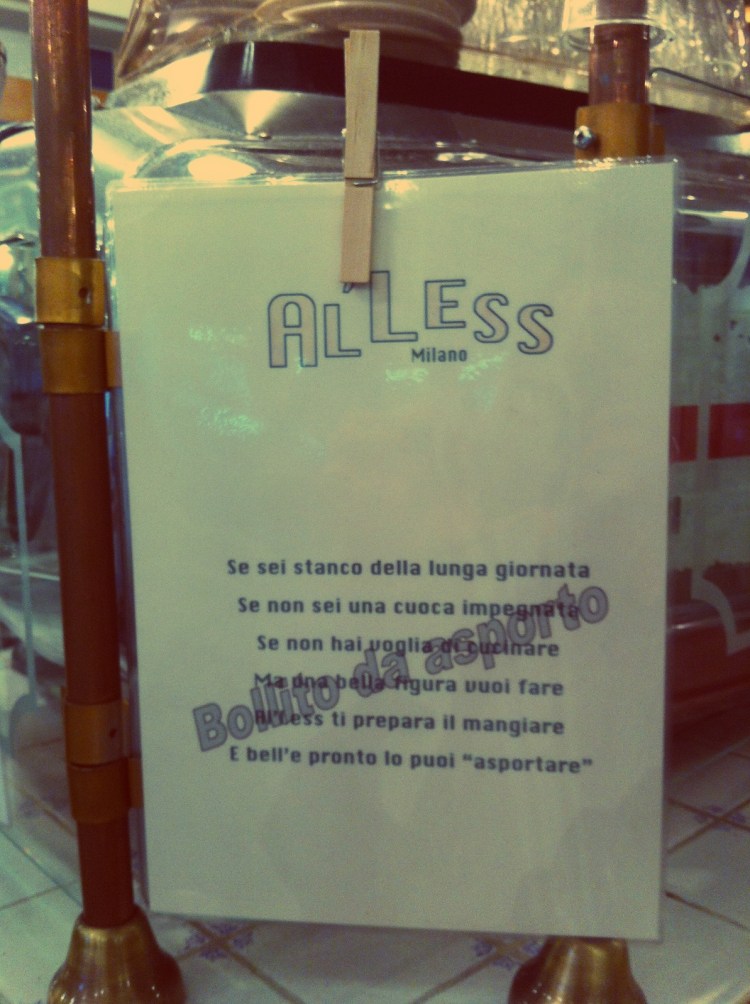 AL'LESS
Milano
Se sei stanco della lunga giornata
Se non sei una cuoca impegnata
Se non hai voglia di cucinare
Ma una bella figura vuoi fare
Al'Less ti prepara il mangiare
E bell'e pronto lo puoi "asportare"
Bollito da asporto